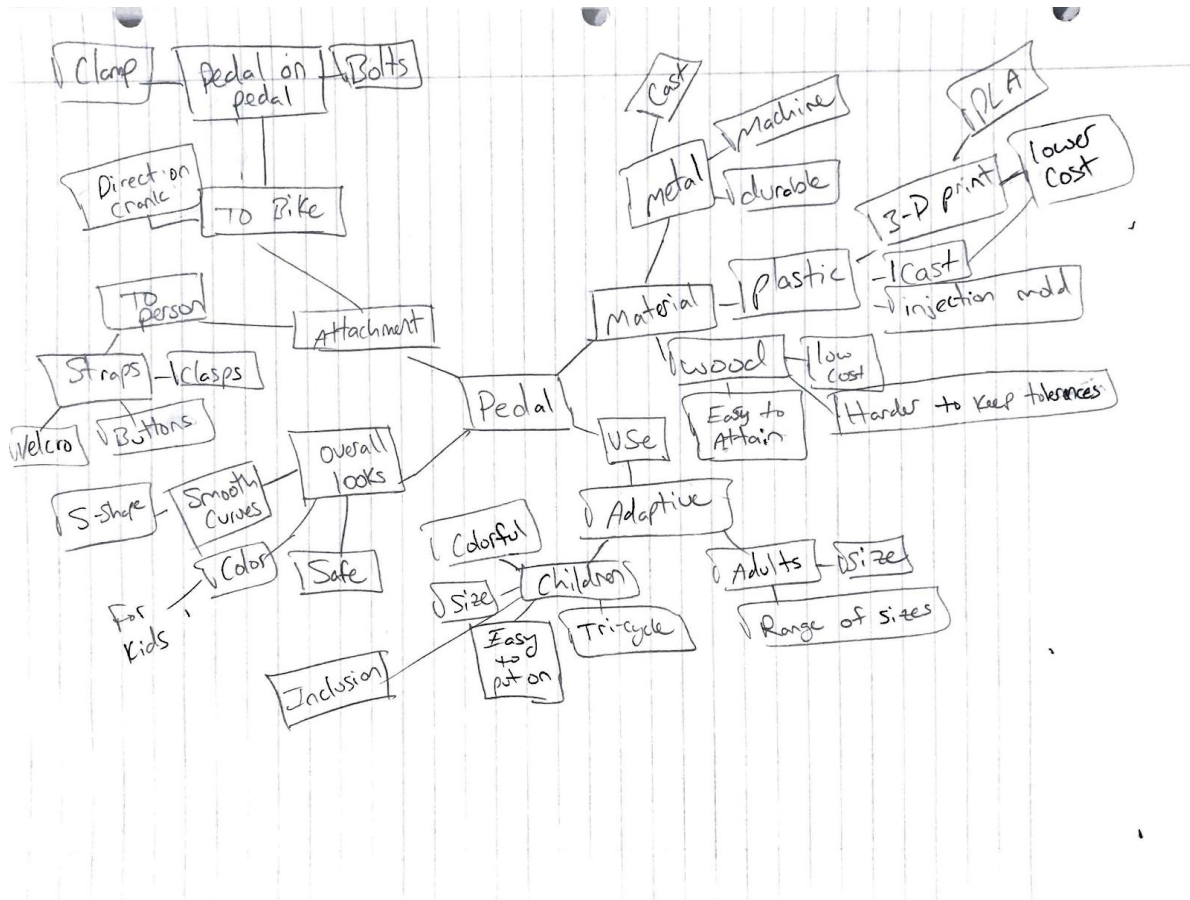 Clamp
Pedal on
pedal
Bolts
Direction
crank
TO Bike
TO
person
Attachment
Straps
Clasps
Velcro
Buttons
Overall
looks
Smooth
Curves
S-shape
Color
For
Kids
Safe
Pedal
Cast
Machine
Metal
durable
PLA
3-D print
lower
cost
Material
plastic
Cast
injection mold
wood
low
cost
Easy to
Attain
Harder to keep tolerences
Use
Adaptive
Colorful
Size
Children
Easy
to
put on
Tri-cycle
Inclusion
Adults
Size
Range of sizes